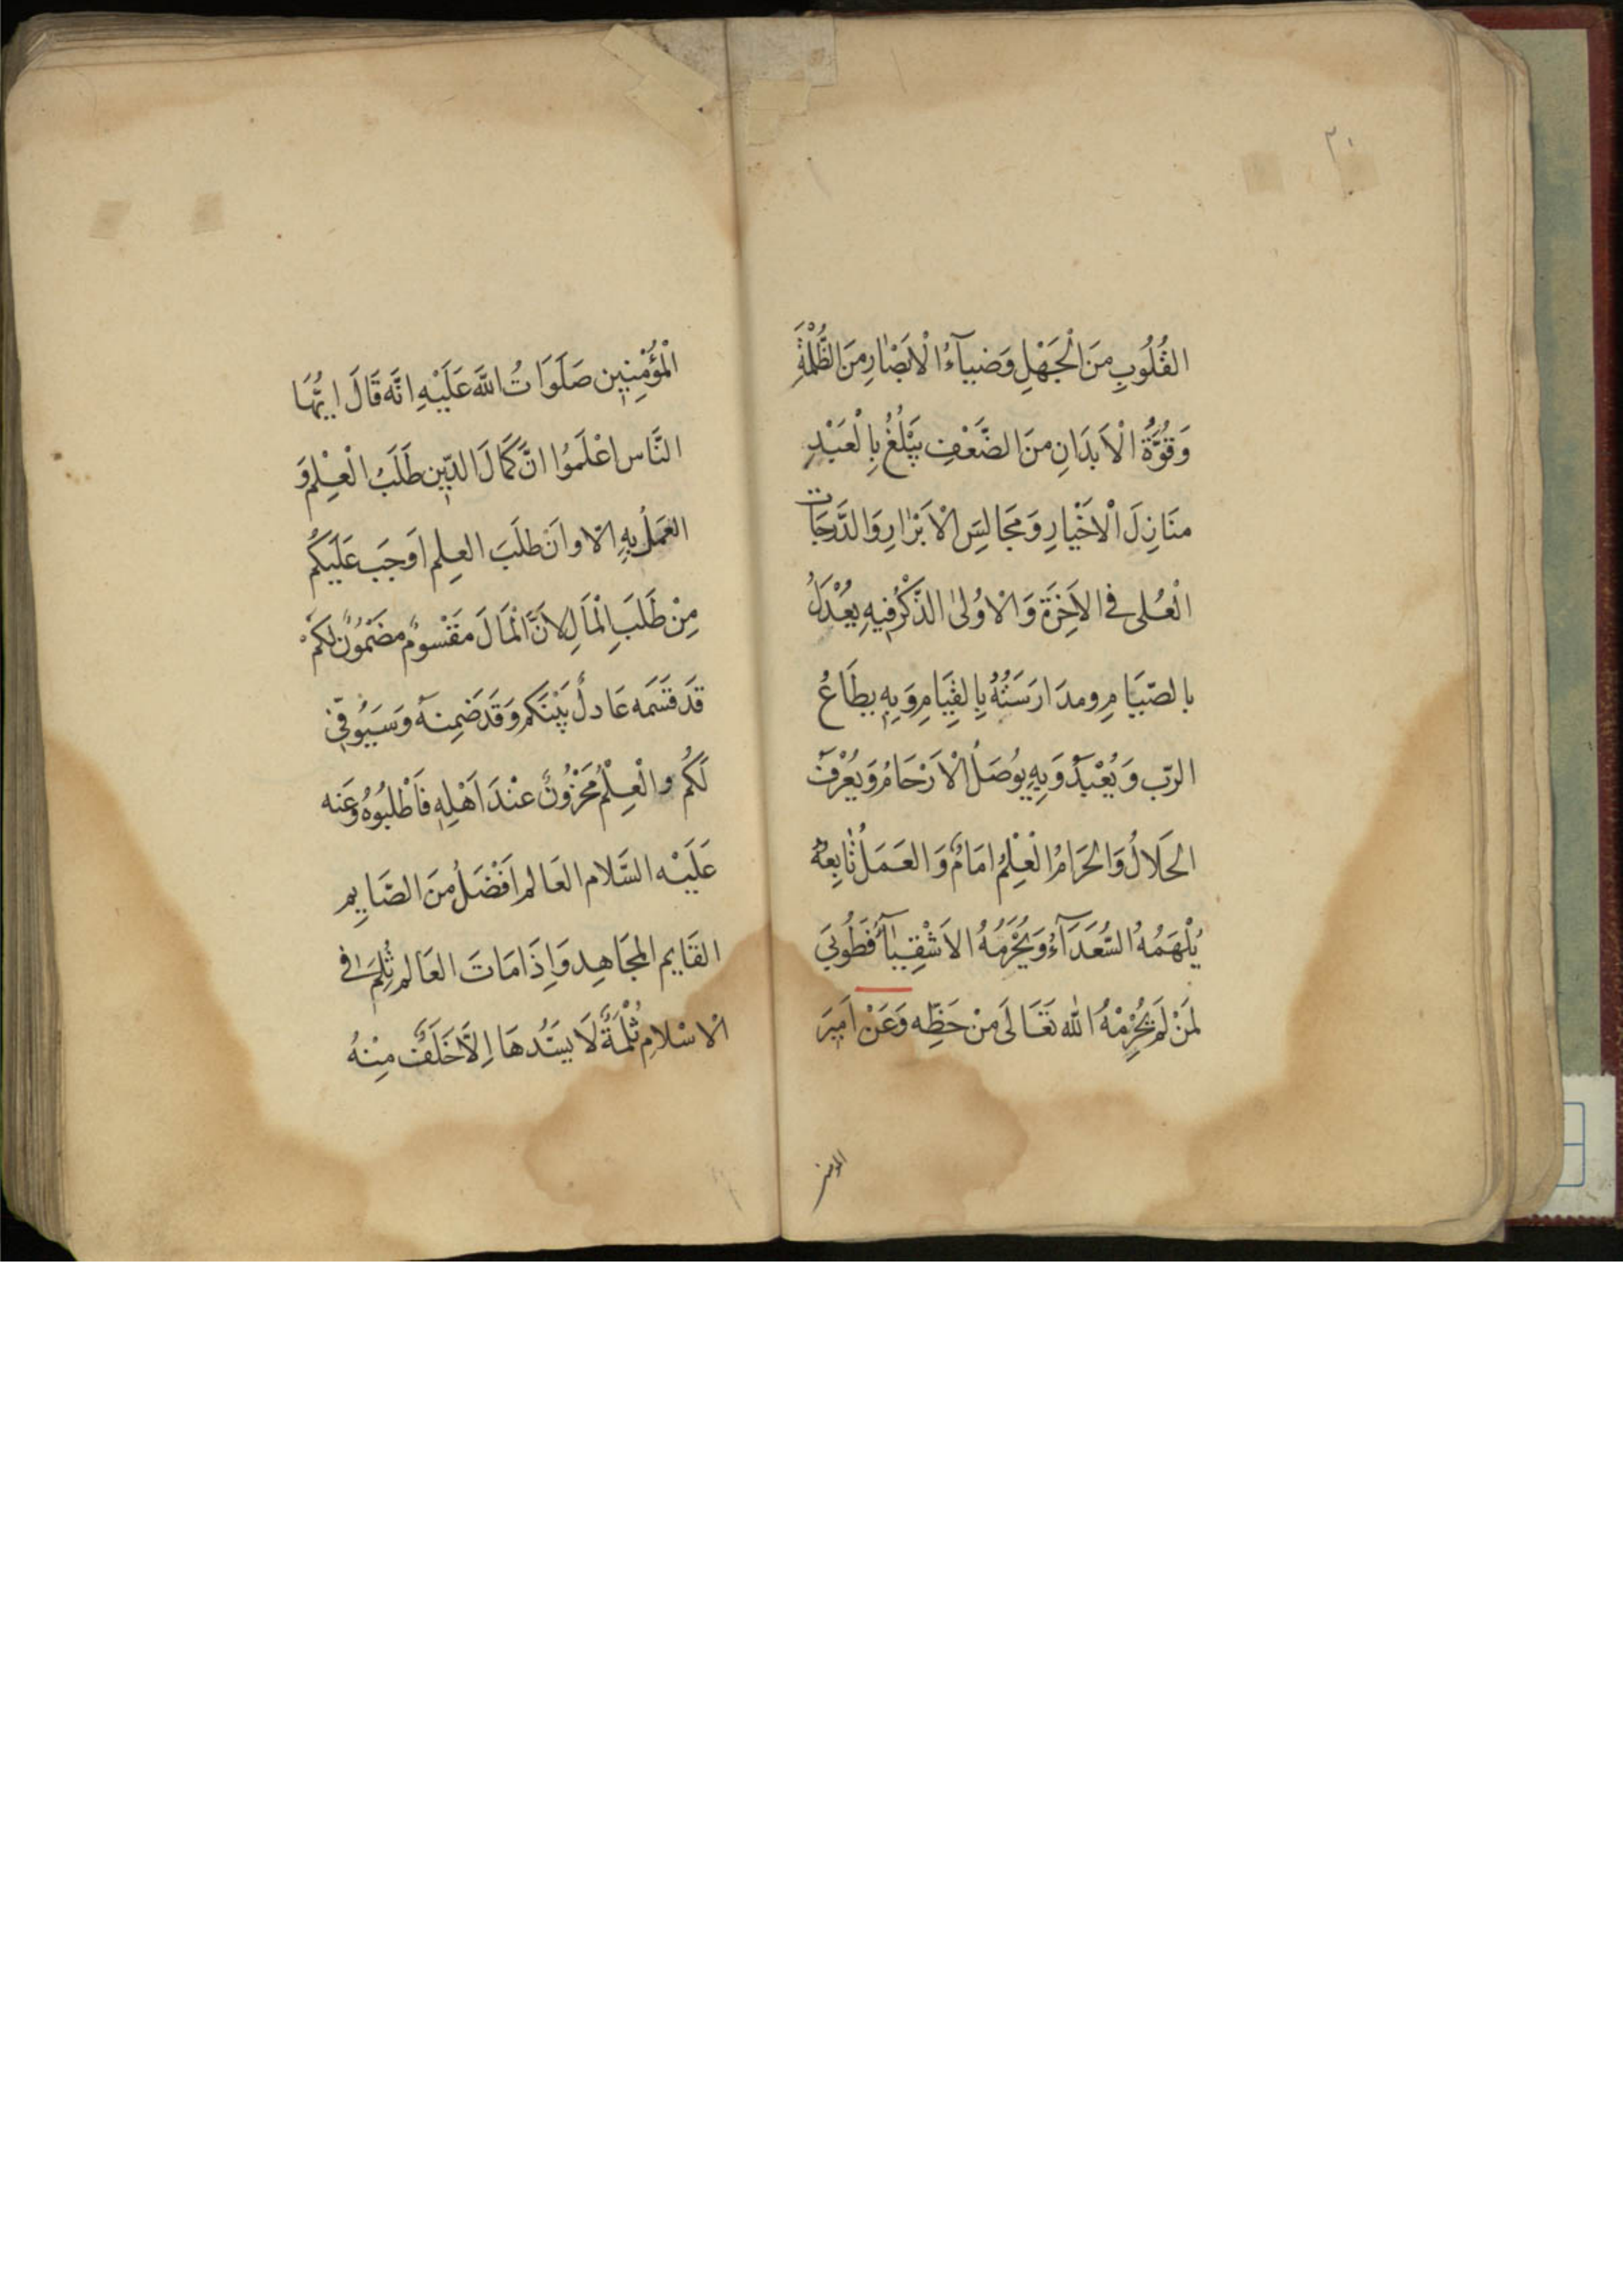 ٢٠
القُلُوبِ مِنَ الْجَهْلِ وَضِيآءُ الْاَبْصٰارِ مِنَ الظُّلْمَةِ
وَقُوَّةُ الْاَبدَانِ مِنَ الضَّعْفِ يَبْلُغُ بِالْعَبْدِ
مَنَازِلَ الْاَخْيٰارِ وَمَجَالِسَ الْاَبْرٰارِ وَالدَّرَجَات
الْعُلى فِى الاٰخِرَةِ وَالْاُولىٰ الذِّكْرُ فِيهِ يُعْدَلُ
بِالصِّيَامِ وَمدَارَسَتُهُ بِالقِيَامِ وَبِهِ يطَاعُ
الرّب وَيُعْبَدُ وَبِهِ يُوصَلُ الْاَرْحَامُ وَيُعْرَفُ
الحَلَالُ وَالحَرَامُ الْعِلْمُ اِمَامٌ وَالعَمَلُ تٰابِعهُ
يُلْهَمُهُ السُّعَدَآءُ وَيُحْرَمُهُ الاَشْقِيٰآءُ فَطُوبىَ
لِمَنْ لَمْ يُحْرِمْهُ الله تَعَالىَ مِنْ حَظِّه وَعَنْ اَمِيرَ
المؤمنين
الْمُؤْمِنِين صَلَوَاتُ اللّهَ عَلَيْهِ انّهَ قَالَ ايُّهَا
النَّاس اعْلَمَوُا انَّ كَمَالَ الدّيِنِ طَلَبُ الْعِلِم وَ
العَمَلُ بِهِ الَا وانَ طلَبَ العِلِم اَوجَب عَلَيَكُم
مِنْ طَلَبَ الْمَالِ لِاَنَّ الْمَالَ مَقْسوُمٌ مَضْموُنٌ لَكُمْ
قَد قَسَّمَه عَادلٌ بَيْنَكم وَقَد ضَمِنَهُ وَسَيُوفّىِ
لَكُم والْعِلْمُ مَخْزُونٌ عنْدَ اَهْلِهِ فَاطْلبُوُهُ وَعَنه
عَلَيْه السَّلام العَالم اَفْضَلُ مِنَ الصَّايِمِ
القَايم المجَاهِد وَاِذَا مَاتَ العَالم ثُلِمَ فى
الْاسْلامِ ثُلْمَةٌ لَا يسَدُّهَا اِلَّا خَلَفٌ مِنْهُ